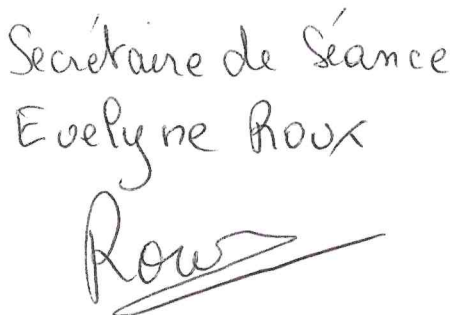 Secrétaire de Séance
Evelyne Roux
Roux